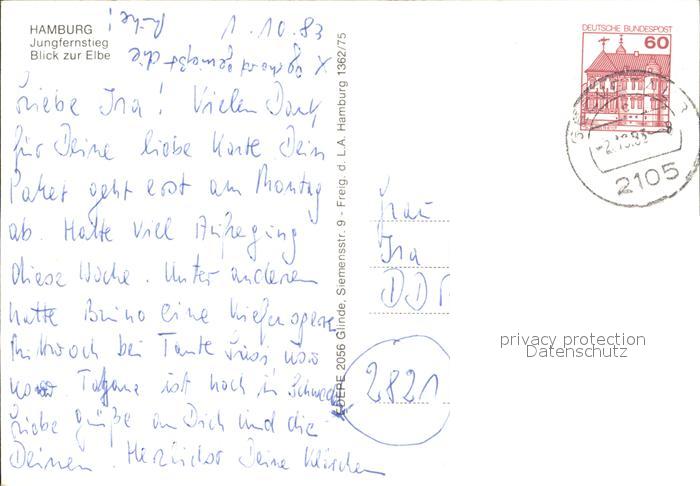 HAMBURG
Jungfernstieg
Blick zur Elbe
1.10.83
Liebe Ira! Vielen Dank
für Deine liebe Karte Dein
Paket geht erst am Montag
ab. Hatte viel Aufregung
diese Woche. Unter anderem
hatte Bruno eine Kieferoperat
Mittwoch bei Tante
ist noch in Schweden
Liebe Grüße an Dich und die
Deinen. Herzlichst Deine Klärchen
EDEPE 2056 Glinde, Siemensstr. 9 - Freig. d. L.A. Hamburg 1362/75
DEUTSCHE BUNDESPOST
60
-2.10.83
2105
Frau
Ira
DDR
2821
privacy protection
Datenschutz